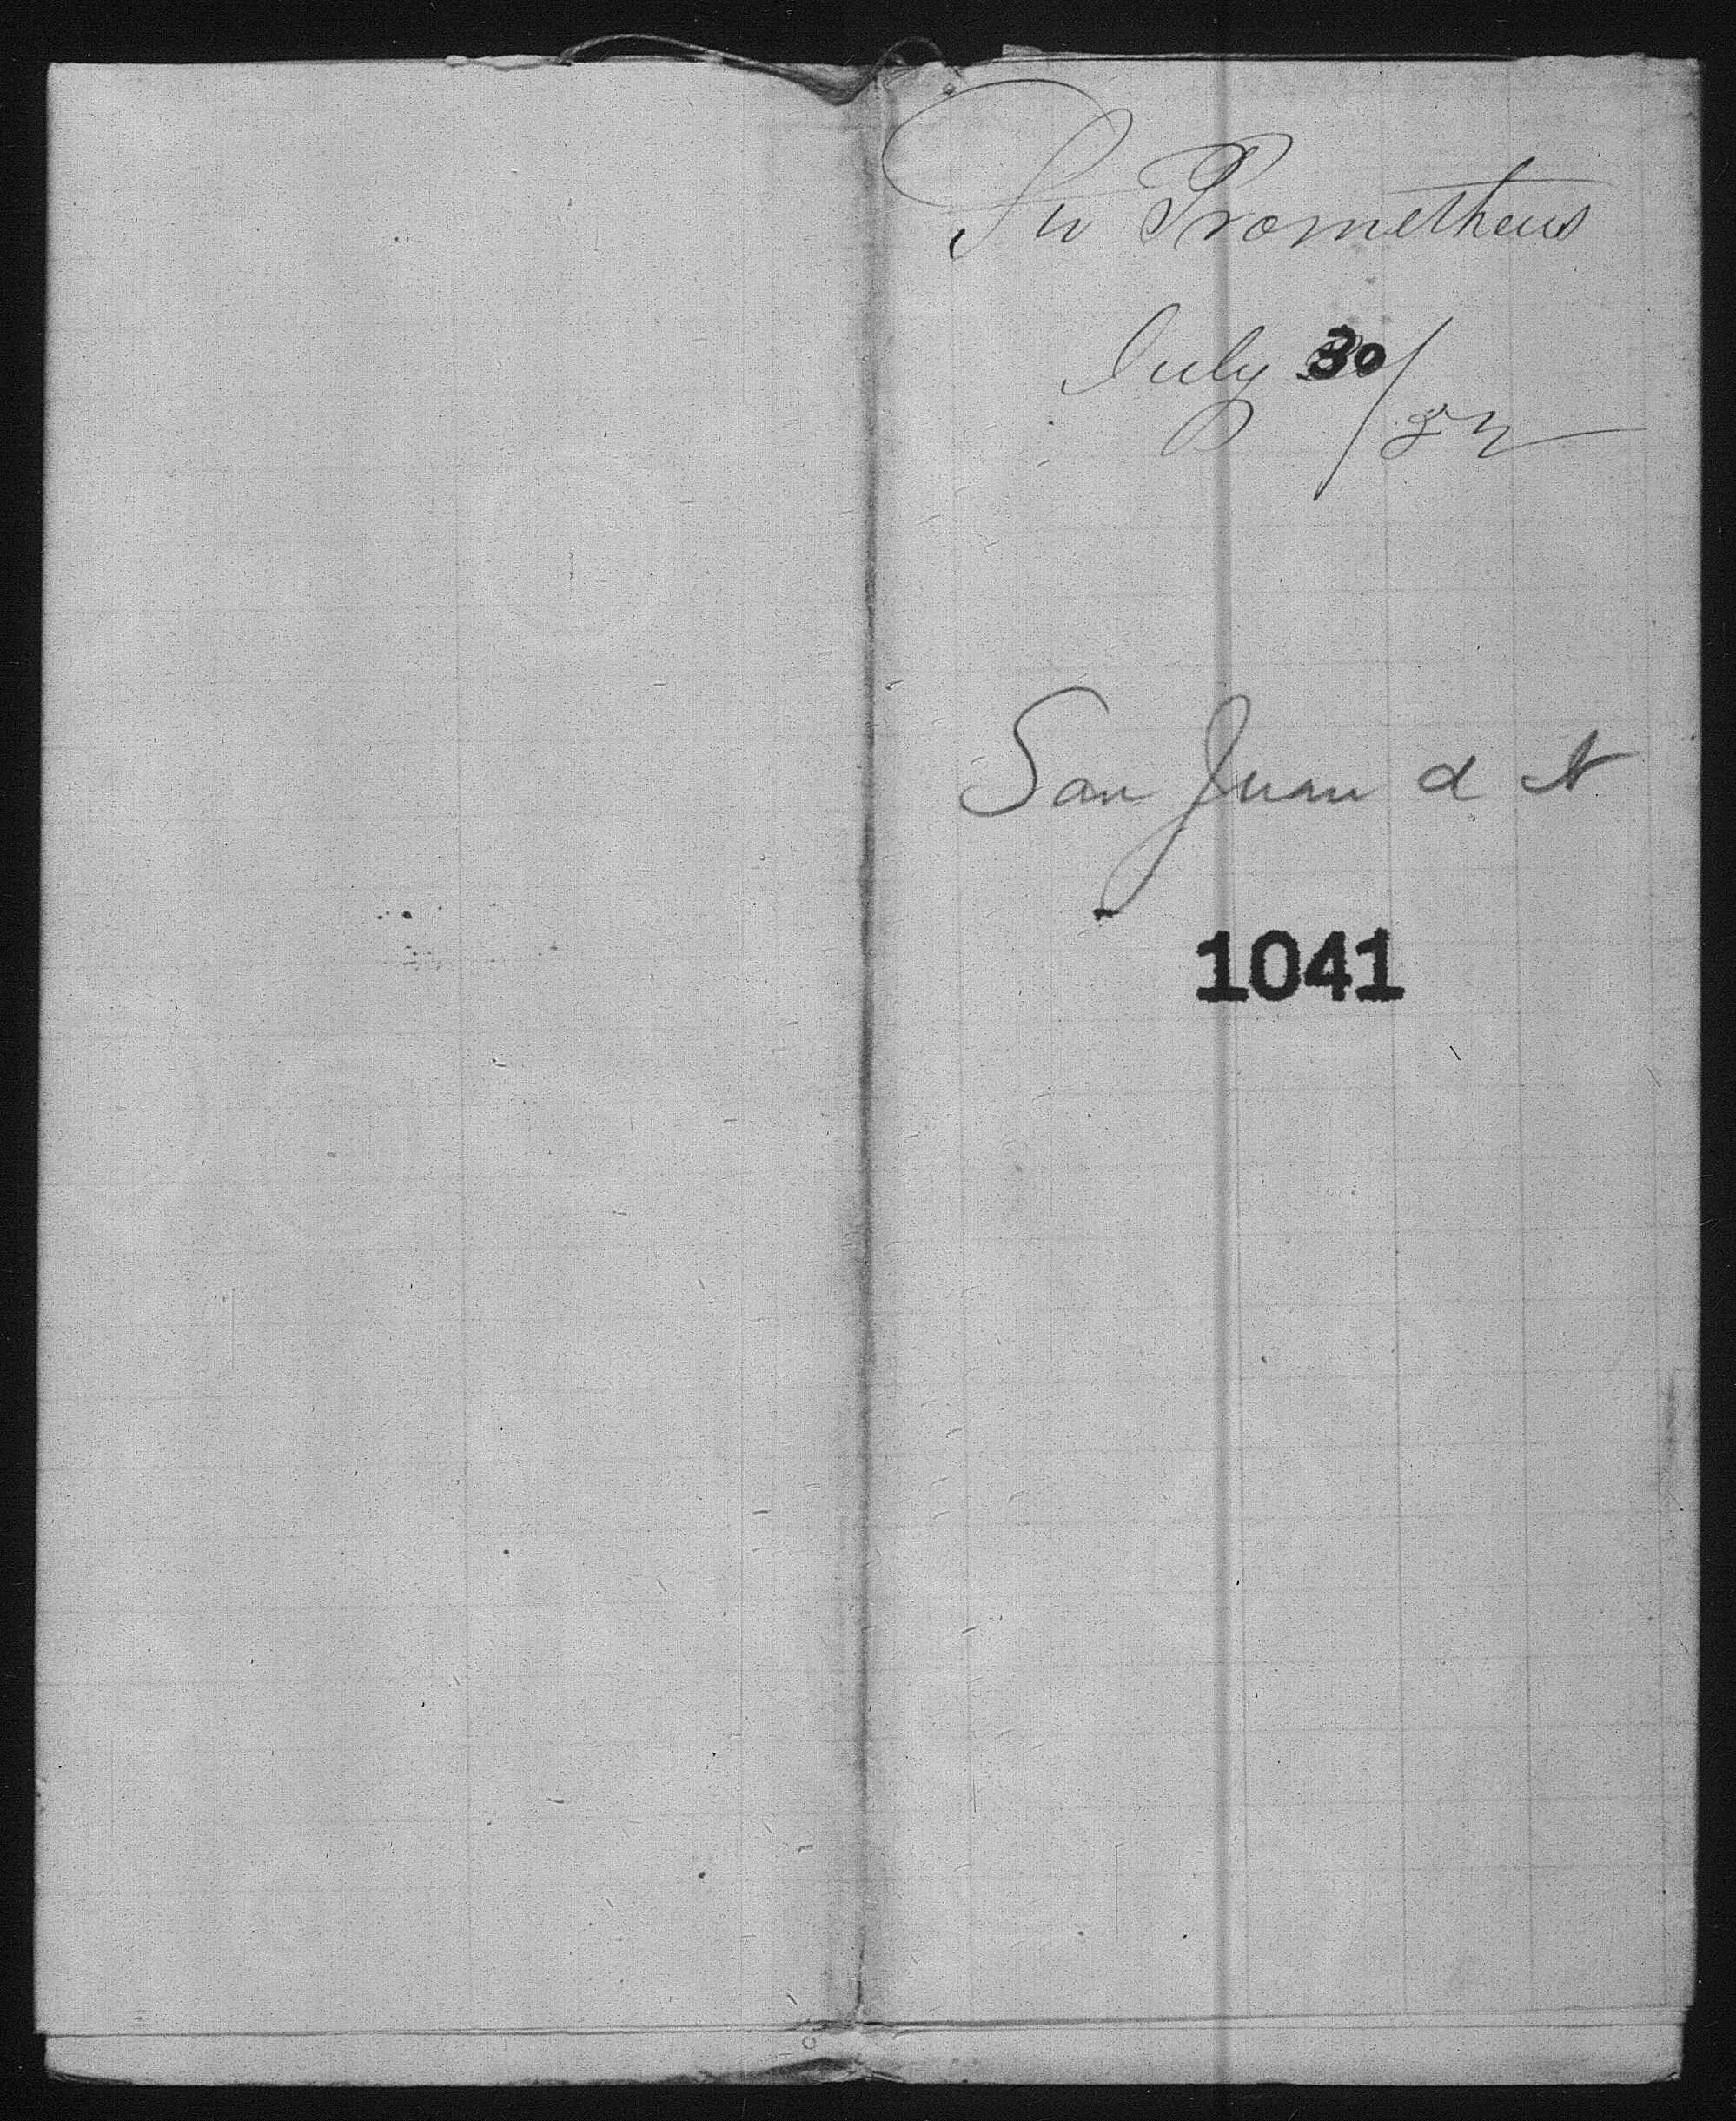 Str Prometheus
July 30/
52
San Juan d N
1041